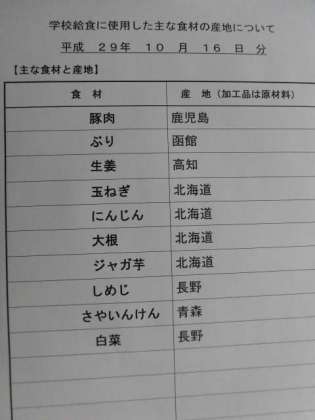 学校給食に使用した主な食材の産地について
平成 29年 10 月 16 日 分
【主な食材と産地】
食 材 産 地 (加工品は原材料)
豚肉 鹿児島
ぶり 函館
生姜 高知
玉ねぎ 北海道
にんじん 北海道
大根 北海道
ジャガ芋 北海道
しめじ 長野
さやいんけん 青森
白菜 長野